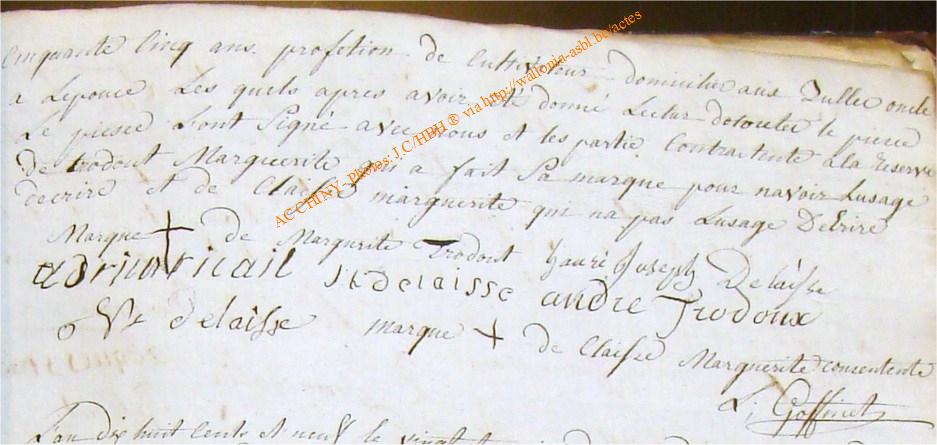 Cinquante Cinq ans profétion de Culttivateur domicilié aux Bulles oncle
a Lepouce Les quels apres avoir été donné Lectur detoutee le piece
Le piesce Lont Signé avec nous et les partie Contractente ala reserve
de trodout Marguerite qui a fait Sa marque pour navoir Lusage
decrire et de Claisse marguerite qui na pas Lusage Décrire
Marque + de Margurite trodout henri Joseph Delaisse
adrian ricail delaisse andre Trodoux
delaisse marque + de Claisse Marguerite consentente
L: Goffinet
Lan dix huit Cents et neuf le vingt
ACCHINY- Photos: J.C/HBH ® via http://wallonia-asbl.be/actes